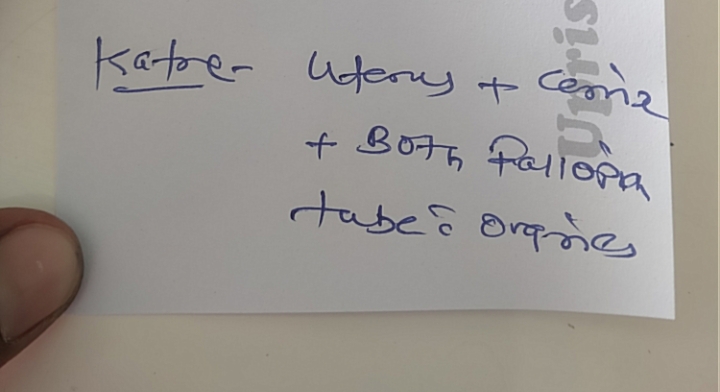 Katre - Uterus + Cervix
+ Both Fallopian
tube c̄ Ovaries
Upris